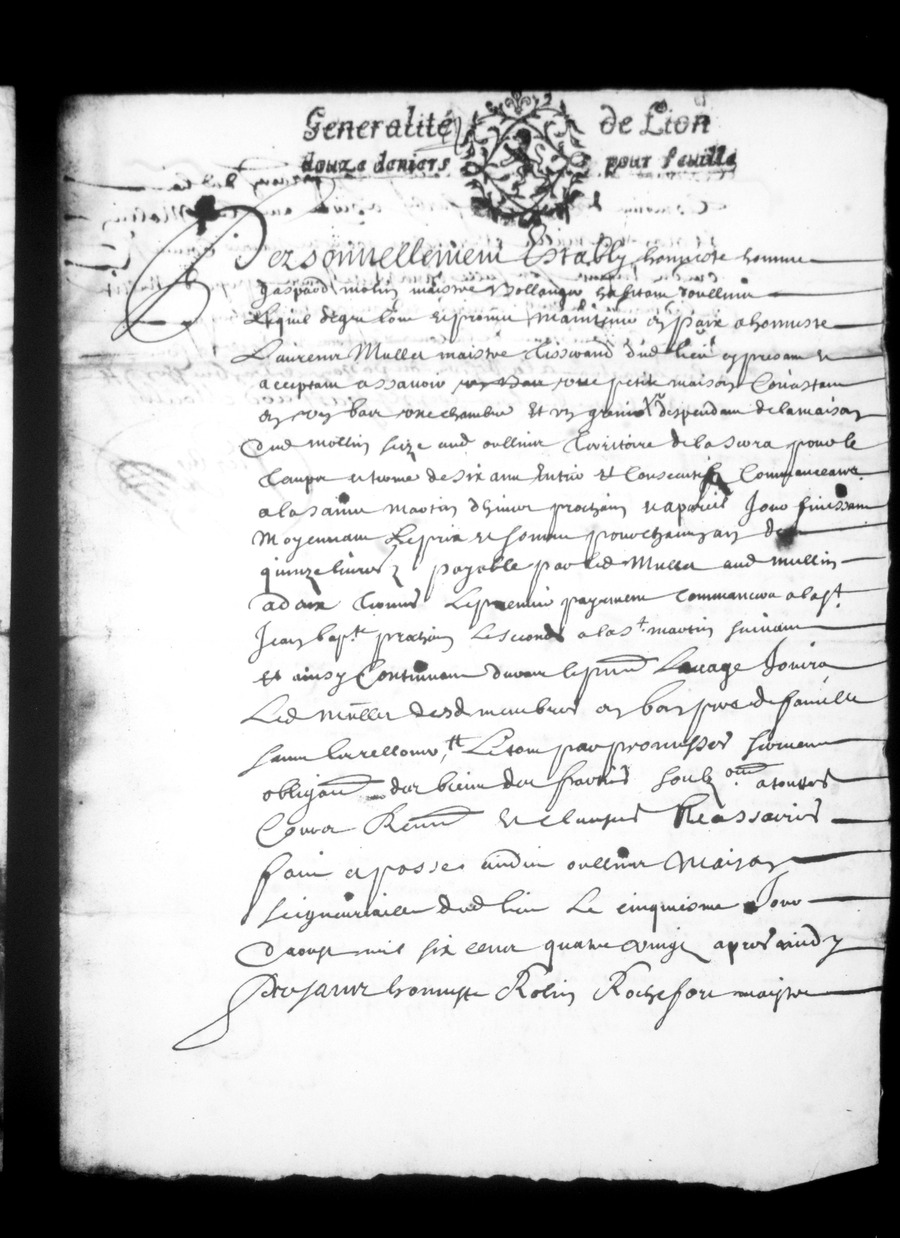 Generalité de Lion
douze deniers pour feuille
Personnellement Estably honneste homme
gaspard mollin maistre Bollanger habitant doullins
Lequel de gre loue et promet maintenir en paix a honneste
Laurent Muller maistre tisserand dud lieu cy present et
acceptant assavoir une petite maison Consistant
en un bas une chambre Et un grenier despendant de la maison
dud mollin size aud oullins territoire de la pour le
temps et terme de six ans Entiers Et Consecutifs Commenceans
a la saint martin dhiver prochain et a pareil Jour finissant
Moyennant Le prix et somme pour chascun an de
quinze livres payable par led Muller aud mollin
a deux termes Le premier payement Commencera a la st
Jean bapt prochain Le second a la st martin suivant
Et ainsy Continuant durant le pnt Louage Jouira
Led Muller desd membres en bon pere de famille
Le tout par promesses serment
obligaon de biens soubzon a touttes
Cours Renon et clauses Necessaires
fait et passé aud oullins Maison
seigneurialle dud lieu Le cinquiesme Jour
daoust mil six cent quatre vingt apres midy
presant honneste Robin Rochefort maistre